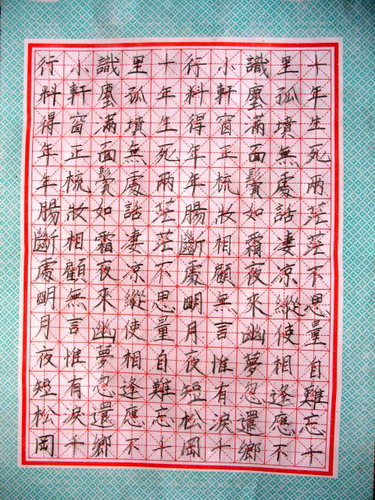 十年生死兩茫茫不思量自難忘千
里孤墳無處話凄凉縱使相逢應不
識塵滿面鬢如霜夜來幽夢忽還鄉
小軒窗正梳妝相顧無言惟有淚千
行料得年年腸斷處明月夜短松岡
十年生死兩茫茫不思量自難忘千
里孤墳無處話凄凉縱使相逢應不
識塵滿面鬢如霜夜來幽夢忽還鄉
小軒窗正梳妝相顧無言惟有淚千
行料得年年腸斷處明月夜短松岡